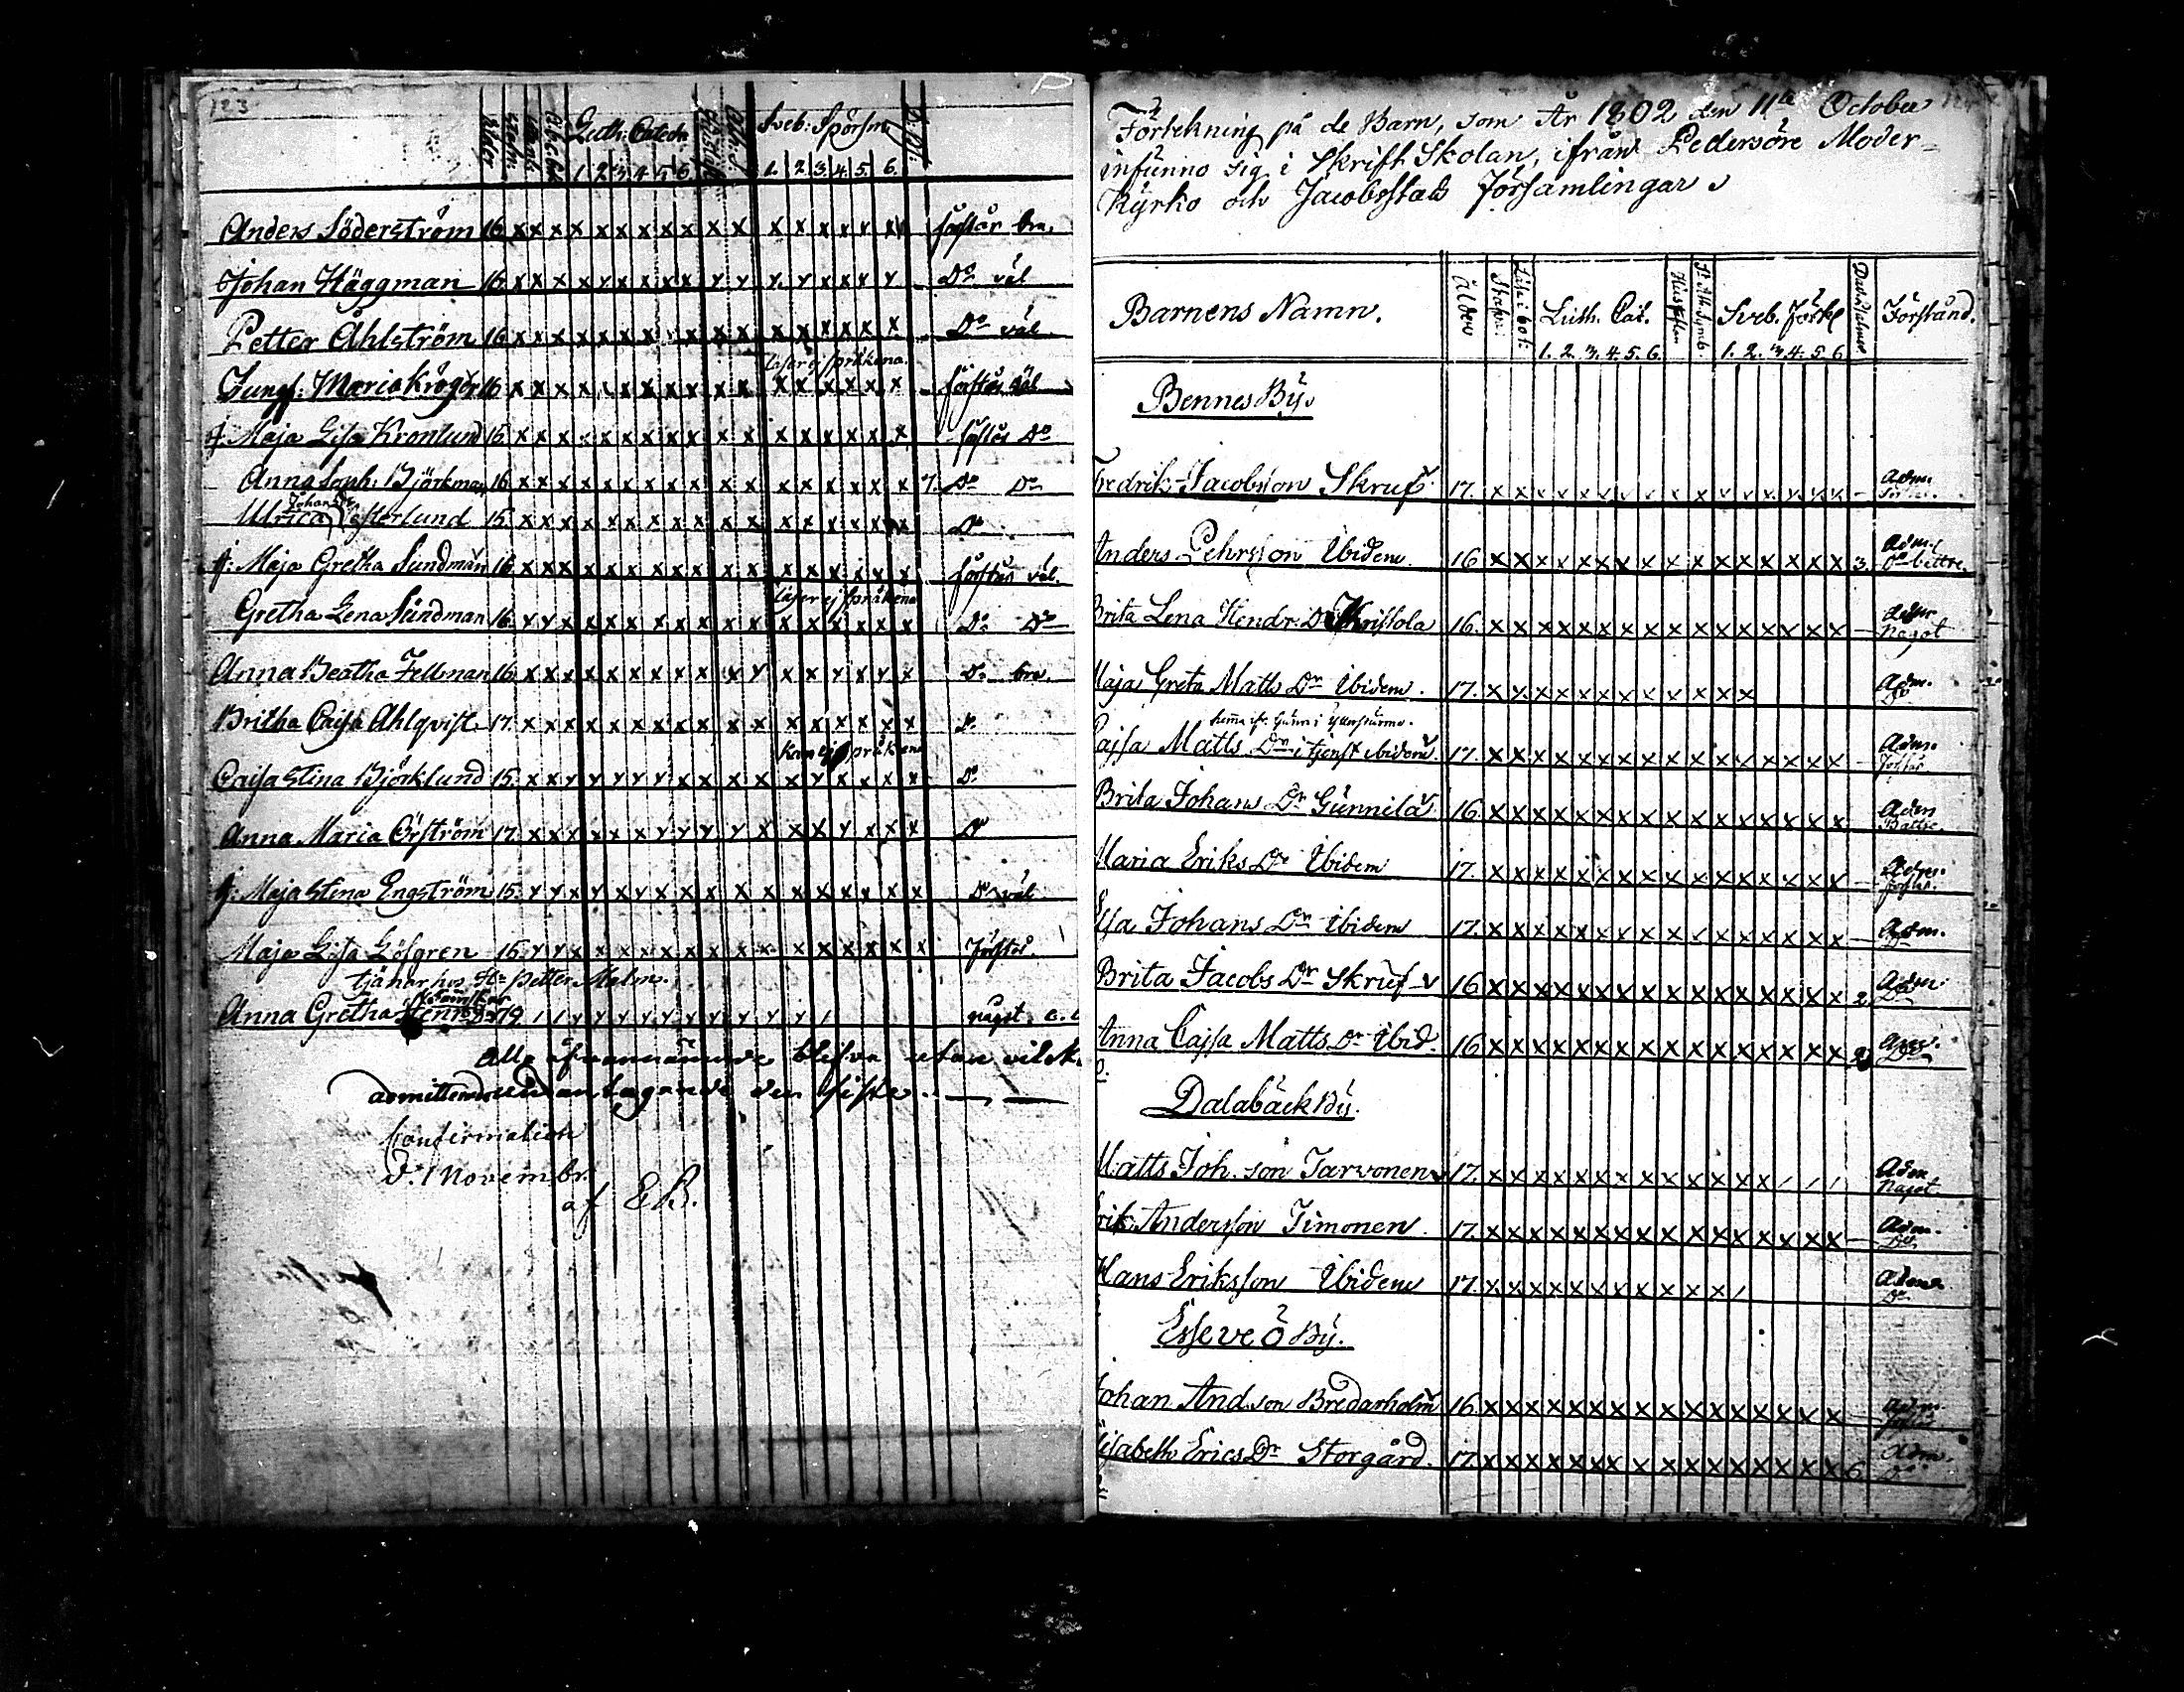 123
Ålder Luth: Catech. Sveb: Spörsm
1. 2. 3. 4. 5. 6. 1. 2. 3. 4. 5. 6.
Anders Söderström 16 x x x x x x x x x x x x x x x x x förstår bra.
Johan Häggman 16. D:o väl
Petter Åhlström 16 D:o väl
läser ej spräkena
Jungf: Maria Kröger 16 förstår väl
j. Maja Lisa Kronlund 15. förstår D:o
Anna Soph: Björkman 16. 7. D:o D:o
Johans Dr
Ulrica Vesterlund 15. D:o
j: Maja Gretha Sundman 16 förstår väl.
läser ej spräkena
Gretha Lena Sundman 16. D:o D:o
Anna Beatha Fellman 16. D:o bra.
Britha Caisa Ahlqvist 17. D:o
Kan ej spräkena
Caisa Stina Björklund 15. D:o
Anna Maria Örström 17. D:o
j: Maja Stina Engström 15. D:o väl
Maja Lisa Löfgren 16. förstår.
tjänar hos Hr Petter Malm.
Anna Gretha Henr: Dr 19. något.
Alla ofvannämnde blefvo utan vilk.
admitterade den siste.
Confirmation
d. 1 Novembr.
af EB.
Förtekning på de Barn, som År 1802 den 11te October
infunno sig i Skrift Skolan, ifrån Pedersöre Moder-
Kyrko och Jacobsstads församlingar
Barnens Namn. Ålder Läsa i bok: Luth. Cat. Hustaflan Sveb. Förkl Dav. Psalmer Förstånd.
1. 2. 3. 4. 5. 6. 1. 2. 3. 4. 5. 6
Bennes By
Fredrik Jacobsson Skruf. 17. Adm. förstår.
Anders Pehrsson Ibidem. 16 3. Adm. D:o bättre.
Brita Lena Hendr. Dr Kristola 16. Adm något
Maja Greta Matts Dr Ibidem. 17. Adm. D:o
Cajsa Matts Dr i tjenst ibidem. 17. Adm. förstår.
Brita Johans Dr Gunnila 16. Adm Bättre.
Maria Eriks Dr Ibidem 17. Adm. förstår.
Lisa Johans Dr Ibidem 17. Adm.
Brita Jacobs Dr Skruf 16 2 Adm. D:o
Anna Cajsa Matts Dr Ibid. 16 2 Adm. D:o
Dalabäck By.
Matts Joh. son Tarvonen 17. Adm något.
Erik Andersson Timonen. 17. Adm. D:o
Hans Eriksson Ibidem 17. Adm. D:o
Esseve Ö By.
Johan And. son Bredarholm 16. Adm. förstår
Elisabeth Erics Dr Storgård. 17. 6. Adm. D:o